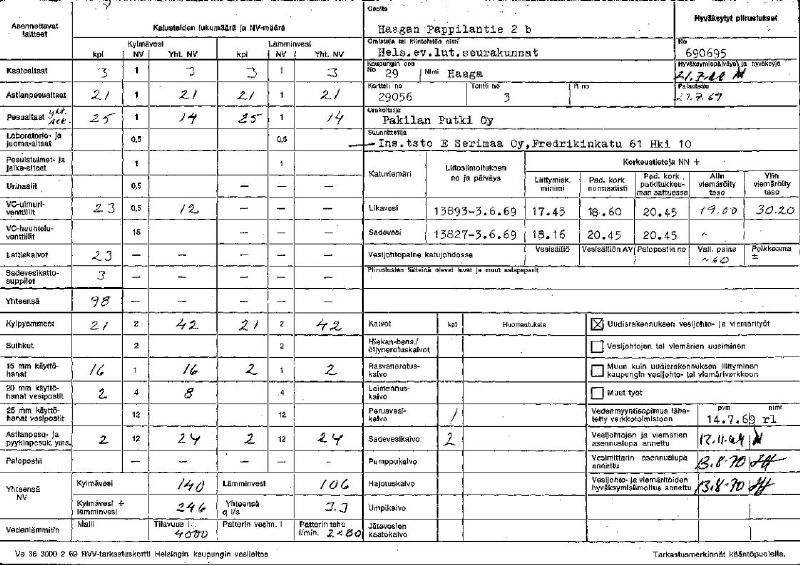 Asennettavat laitteet
Kalusteiden lukumäärä ja NV-määrä
Kylmävesi Lämminvesi
kpl NV Yht. NV kpl NV Yht. NV
Kaatoaltaat 3 1 3 3 1 3
Astianpesualtaat 21 1 21 21 1 21
Pesualtaat 25 1 14 25 1 14
Laboratorio- ja juoma-altaat 0,5 0,5
Pesuistuimet- ja jalka-altaat 1 — 1 —
Urinaalit 0,5 — — — —
VC-uimuri-venttiilit 23 0,5 12 — — —
VC-huuhtelu-venttiilit 18 — — —
Lattiakaivot 23 — — — — —
Sadevesikatto-suppilot 3 — — — — —
Yhteensä 98 — — — — —
Kylpyammeet 21 2 42 21 2 42
Suihkut 2 2
15 mm käyttö-hanat 16 1 16 2 1 2
20 mm käyttö-hanat vesipostit 2 4 8 4
25 mm käyttö-hanat vesipostit 12 12
Astianpesu- ja pyykinpesuk. yms. 2 12 24 2 12 24
Palopostit — — — — —
Yhteensä NV
Kylmävesi 140 Lämminvesi 106
Kylmävesi + lämminvesi 246 Yhteensä q l/s 3.3
Vedenlämmitin Malli Tilavuus l 4000 Patterin vesim. l Patterin teho l/min. 2×80
Osoite
Haagan Pappilantie 2 b
Omistaja tai kiinteistön nimi
Hels.ev.lut.seurakunnat
Kaupungin osa
No 29 Nimi Haaga
Kortteli no 29056 Tontti no 3 R:no
Urakoitsija
Pakilan Putki Oy
Suunnittelija
Ins.tsto E Serimaa Oy, Fredrikinkatu 61 Hki 10
Hyväksytyt piirustukset
No 690695
Hyväksymispäiväys ja hyväksyjä
Palautettu
21.7.69
Katuviemäri
Liitosilmoituksen no ja päiväys
Korkeustietoja NN +
Liittymisk. minimi Pad. kork. normaalisti Pad. kork. putkitukkeu-man sattuessa Alin viemäröity taso Ylin viemäröity taso
Likavesi 13893-3.6.69 17.43 18.60 20.45 19.00 30.20
Sadevesi 13827-3.6.69 18.16 20.45 20.45
Vesijohtopaine katujohdossa Vesisäiliö Vesisäiliön AV Palopostin no Vall. paine ~60 Poikkeama ±
Piirustusten lisäksi olevat luvat ja muut asiapaperit
Kaivot kpl Huomautuksia
Hiekan-bens./öljynerotuskaivot
Rasvanerotus-kaivo
Laimennus-kaivo
Perusvesi-kaivo 1
Sadevesikaivo 2
Pumppukaivo
Hajotuskaivo
Umpikaivo
Jätevesien kaatokaivo
☒ Uudisrakennuksen vesijohto- ja viemärityöt
☐ Vesijohtojen tai viemärien uusiminen
☐ Muun kuin uudisrakennuksen liittyminen kaupungin vesijohto- tai viemäriverkkoon
☐ Muut työt
pvm nimi
Vedenmyyntisopimus lähe-tetty verkkotoimistoon 14.7.69 rl
Vesijohtojen ja viemärien asennuslupa annettu
Vesimittarin asennuslupa annettu 13.8-70
Vesijohto- ja viemäritöiden hyväksymisilmoitus annettu 13.8-70
Va 36 3000 2 69 RVV-tarkastuskortti Helsingin kaupungin vesilaitos
Tarkastusmerkinnät kääntöpuolella.